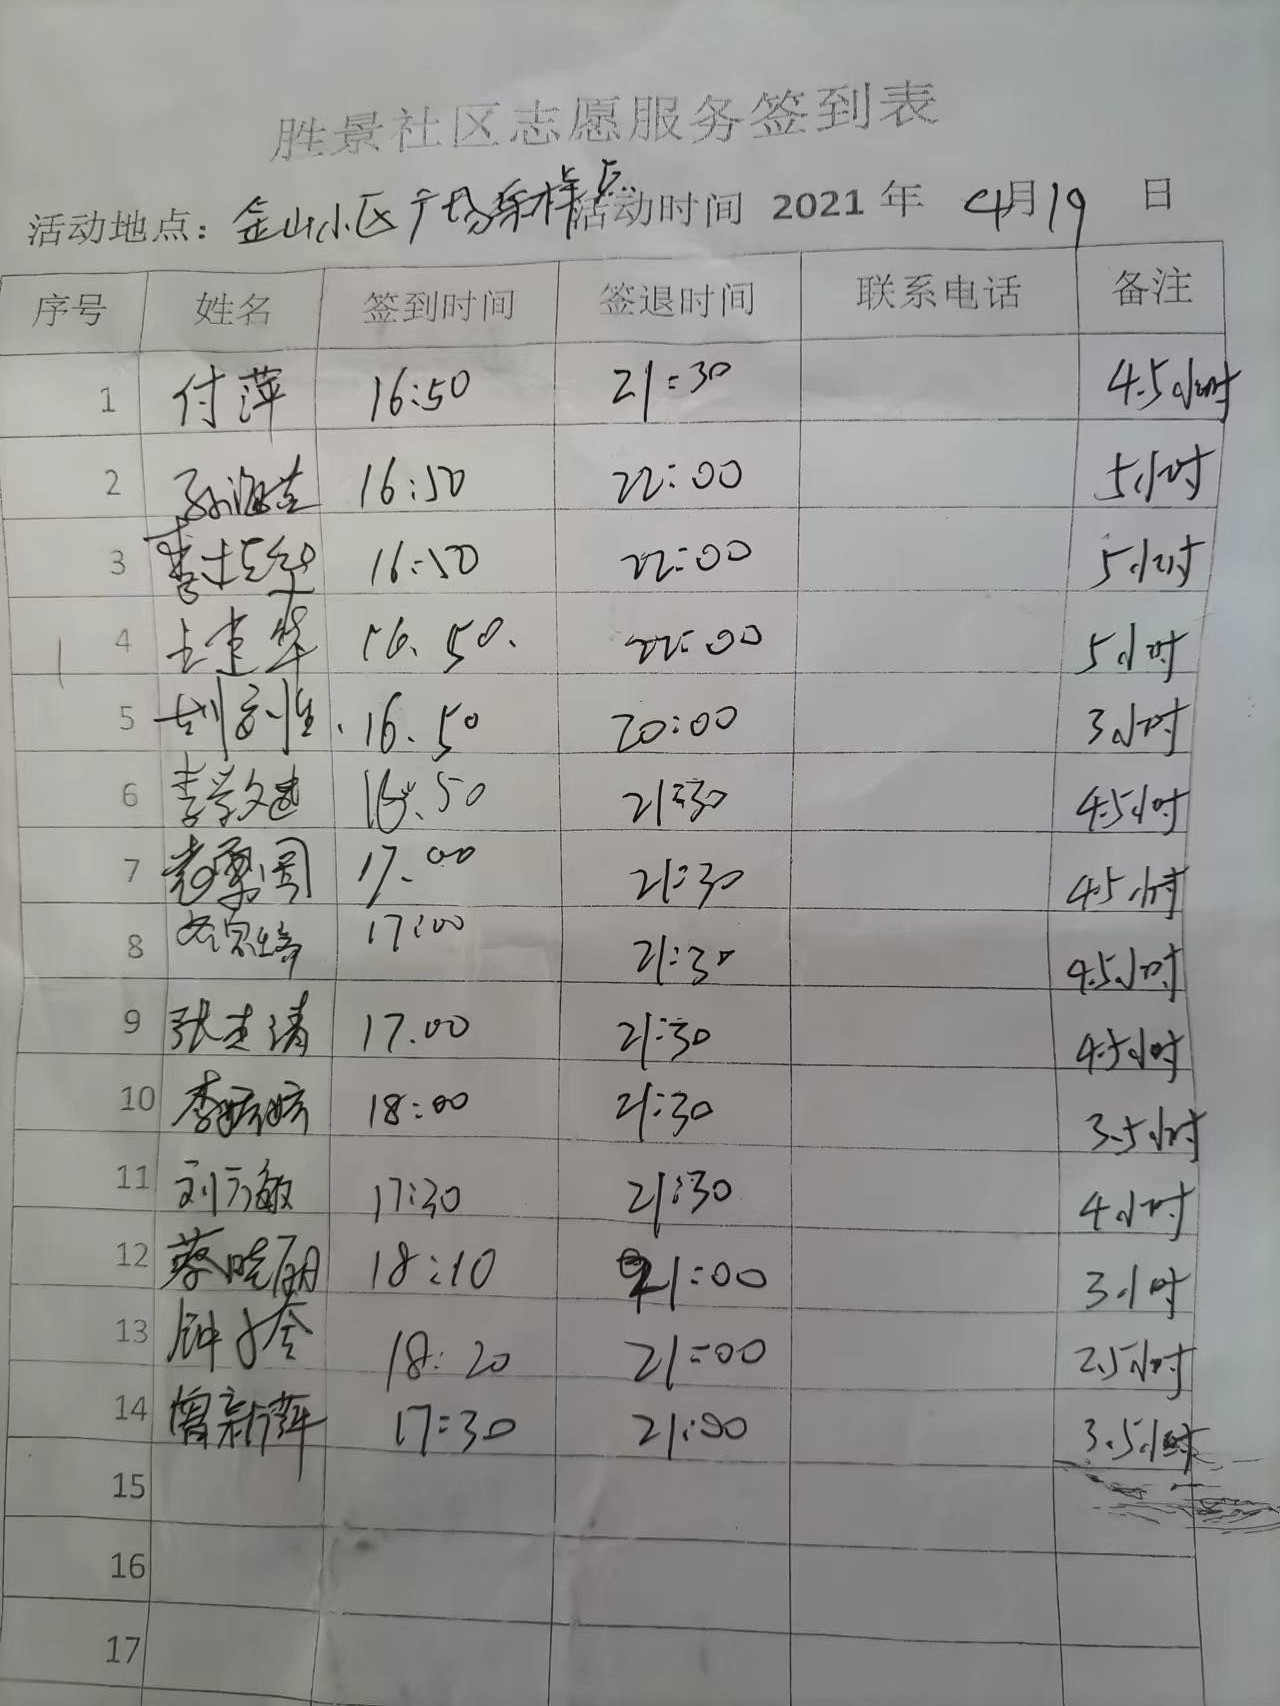 胜景社区志愿服务签到表
活动地点：金山小区广场采样点 活动时间 2021 年 4月19 日
序号 姓名 签到时间 签退时间 联系电话 备注
1 付萍 16:50 21:30 4.5小时
2 孙海 16:50 22:00 5小时
3 李 16:50 22:00 5小时
4 王建华 16.50. 22:00 5小时
5 16.50 20:00 3小时
6 李学文 16.50 21:30 4.5小时
7 17.00 21:30 4.5小时
8 17:00 21:30 4.5小时
9 张志清 17.00 21:30 4.5小时
10 李 18:00 21:30 3.5小时
11 刘方敏 17:30 21:30 4小时
12 蔡晓丽 18:10 21:00 3小时
13 钟 18:20 21:00 2.5小时
14 曾新萍 17:30 21:00 3.5小时
15
16
17